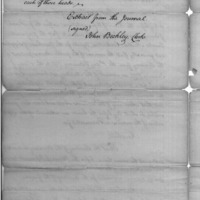 each of those heads. ..
Extract from the Journal
(signed)
John Beckley, Clerk